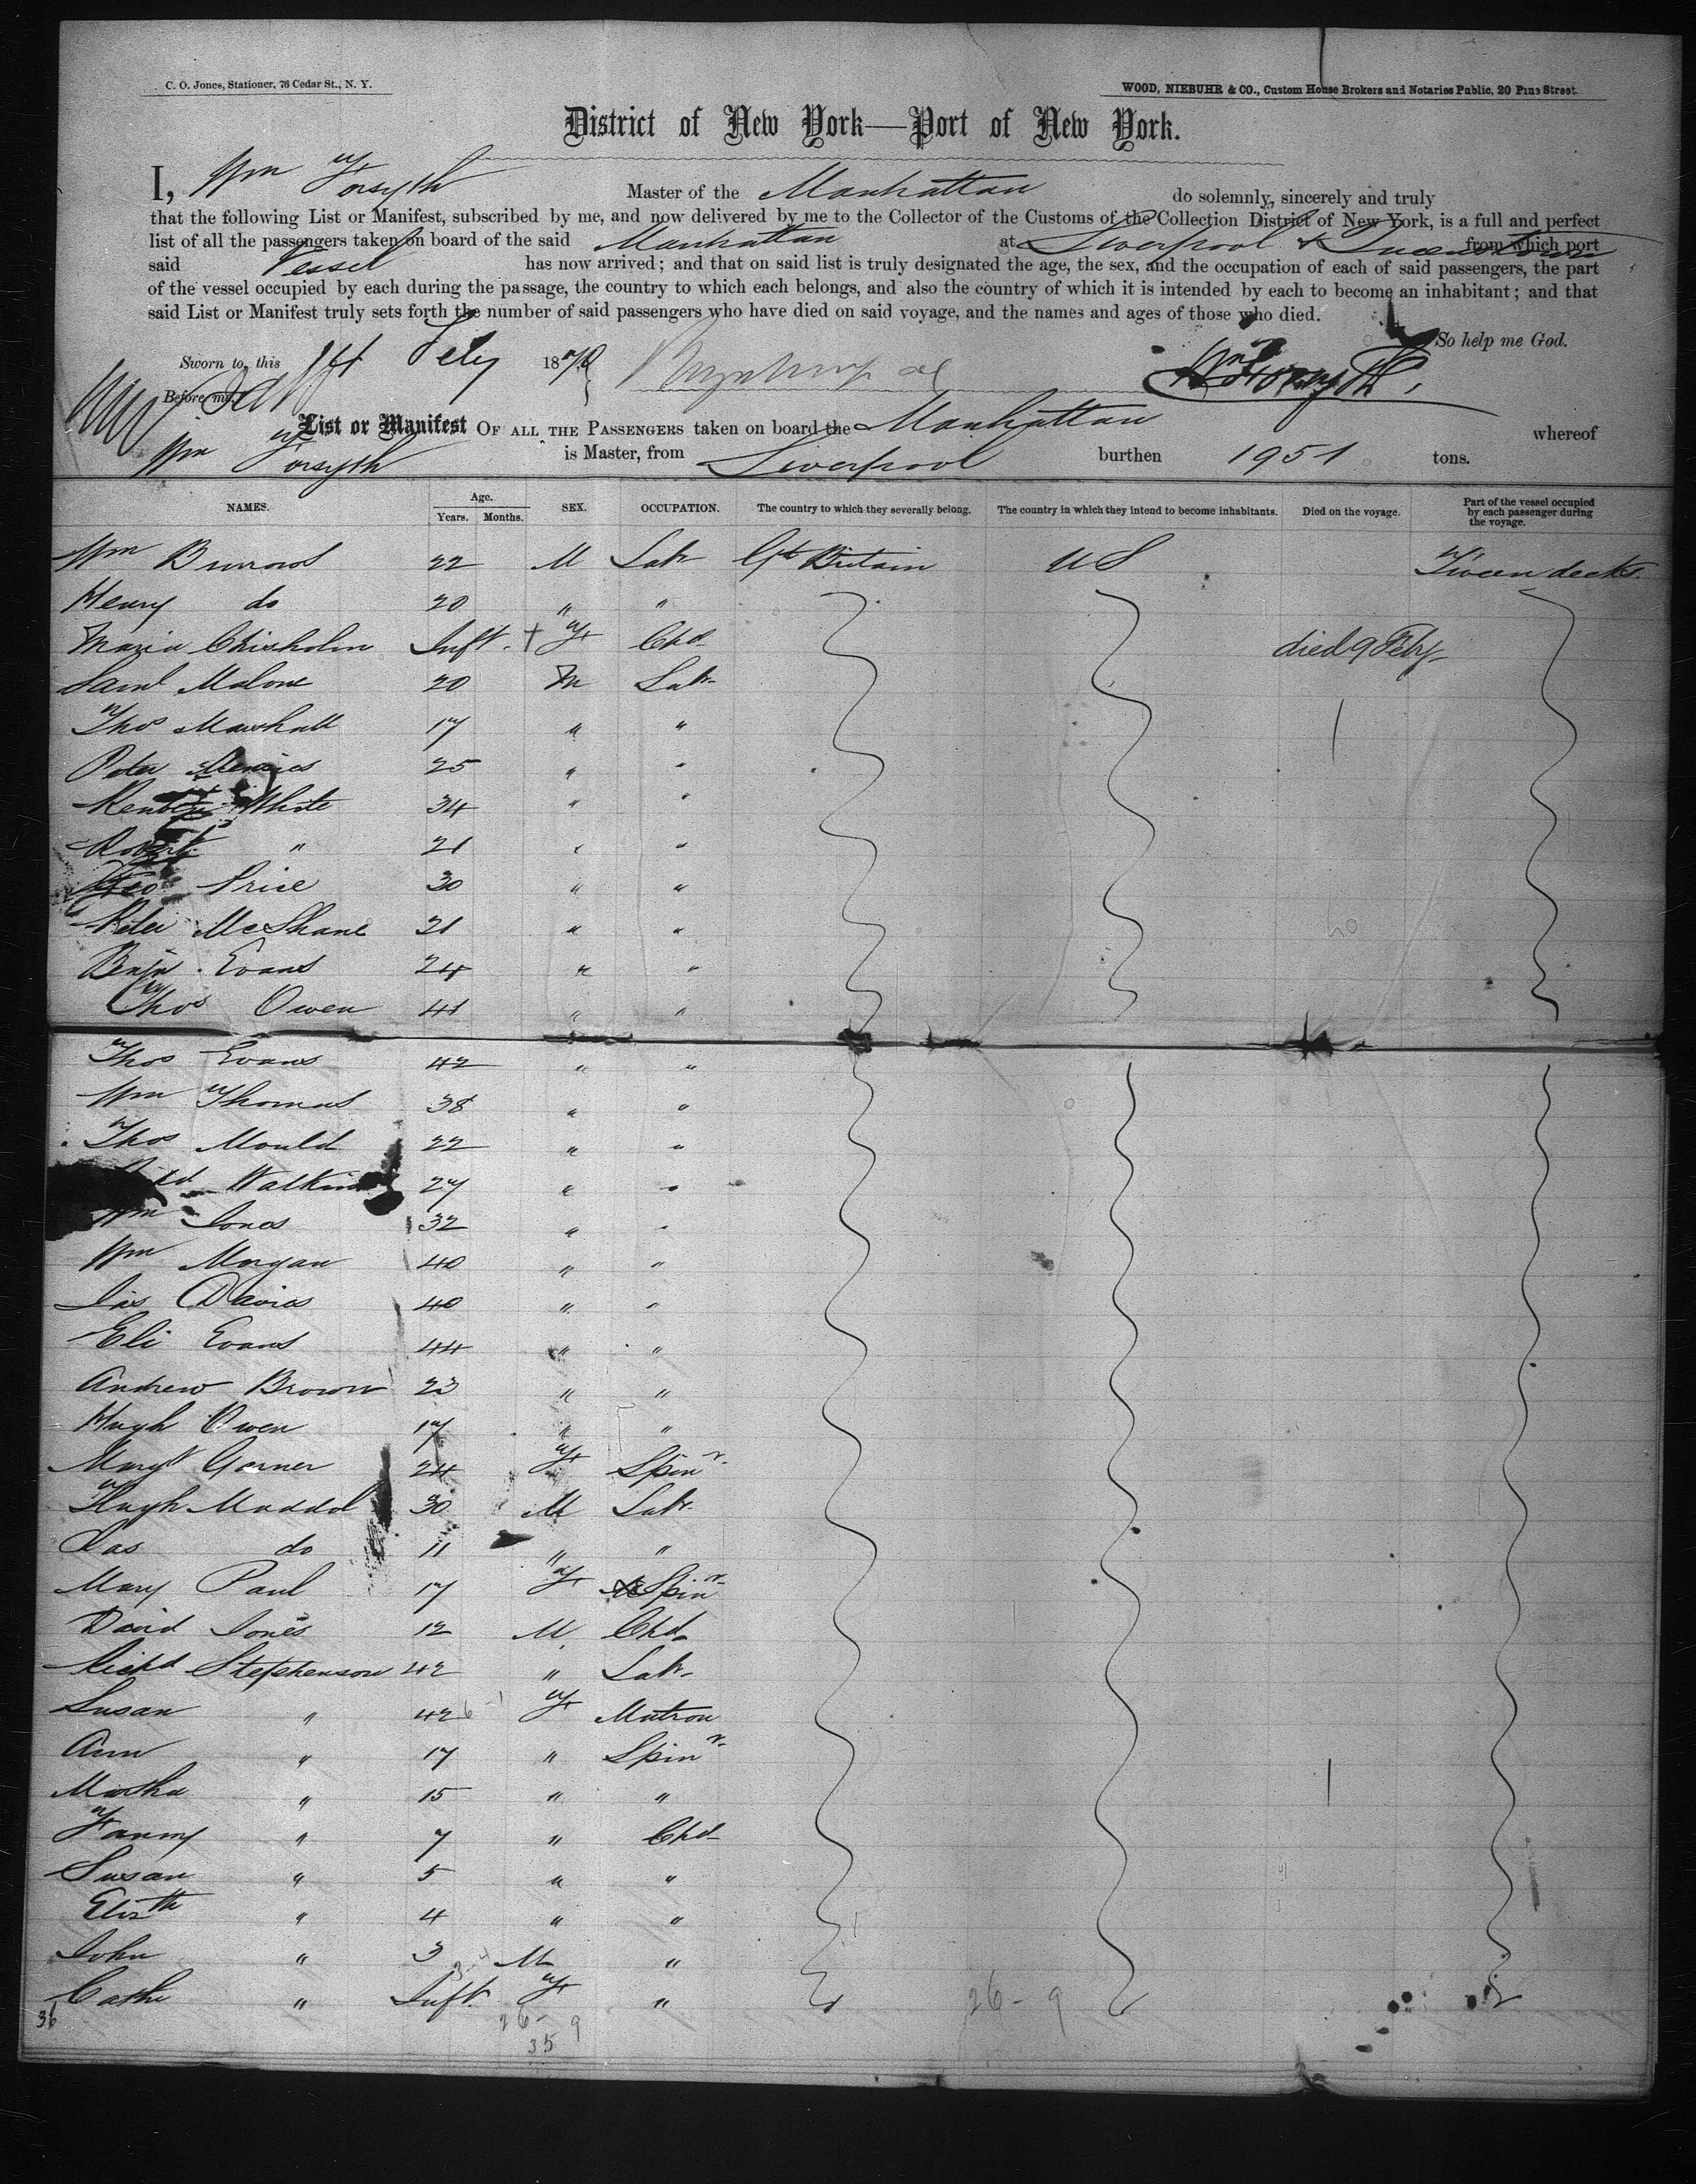 C. O. Jones, Stationer, 76 Cedar St., N. Y.
WOOD, NIEBUHR & CO., Custom House Brokers and Notaries Public, 20 Pine Street.
District of New York—Port of New York.
I, Wm Forsyth Master of the Manhattan do solemnly, sincerely and truly
that the following List or Manifest, subscribed by me, and now delivered by me to the Collector of the Customs of the Collection District of New York, is a full and perfect
list of all the passengers taken on board of the said Manhattan at Liverpool & Queenstown from which port
said Vessel has now arrived; and that on said list is truly designated the age, the sex, and the occupation of each of said passengers, the part
of the vessel occupied by each during the passage, the country to which each belongs, and also the country of which it is intended by each to become an inhabitant; and that
said List or Manifest truly sets forth the number of said passengers who have died on said voyage, and the names and ages of those who died.
So help me God.
Sworn to, this 14 Feby 1870
Before me,
Wm Forsyth
List or Manifest OF ALL THE PASSENGERS taken on board the Manhattan whereof
Wm Forsyth is Master, from Liverpool burthen 1951 tons.
NAMES. Age. Years. Months. SEX. OCCUPATION. The country to which they severally belong. The country in which they intend to become inhabitants. Died on the voyage. Part of the vessel occupied by each passenger during the voyage.
Wm Burrows 22 M Labr Gt Britain U S Tween decks
Henry do 20 " "
Maria Chisholm Inft. + F Chd died 9 Feby
Saml Malone 20 M Labr
Thos Marshall 17 " "
Peter 25 " "
White 34 " "
Robert " 21 " "
Geo Price 30 " "
Peter McShane 21 " "
Benjn Evans 24 " "
Thos Owen 41 " "
Thos Evans 42 " "
Wm Thomas 38 " "
Thos Mould 22 " "
Watkins 27 " "
Wm Jones 32 " "
Wm Morgan 40 " "
Jas Davies 40 " "
Eli Evans 44 " "
Andrew Brown 23 " "
Hugh Owen 17 " "
Margt Garner 24 F Spinr
Hugh Maddol 30 M Labr
Jas do 11 " "
Mary Paul 17 F Spinr
David Jones 12 M Chd
Richd Stephenson 42 " Labr
Susan " 42 F Matron
Ann " 17 " Spinr
Martha " 15 " "
Fanny " 7 " Chd
Susan " 5 " "
Elizth " 4 " "
John " 3 M "
Cathe " Inft. F "
36
26 - 9
35
26 - 9